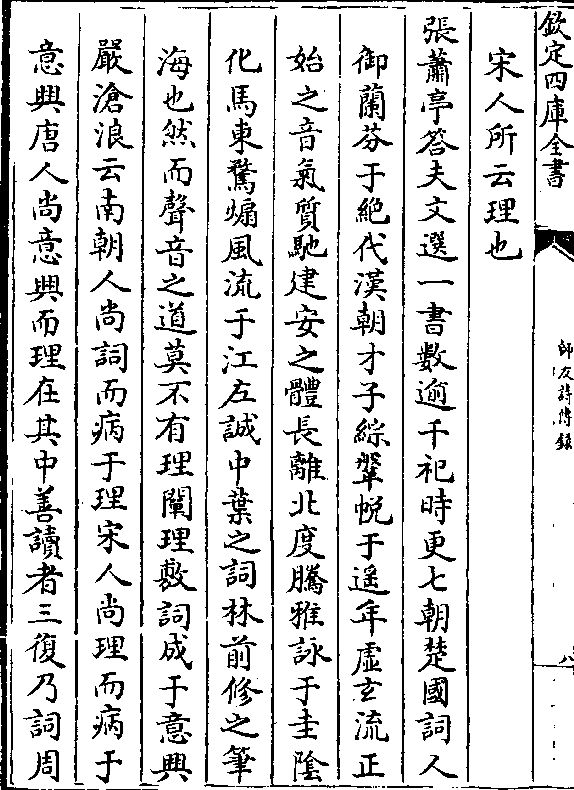 欽定四庫全書
師友詩傳錄
八
宋人所云理也
張蕭亭答夫文選一書數逾千祀時更七朝楚國詞人
御蘭芬于絕代漢朝才子綜鞶帨于遥年虛玄流正
始之音氣質馳建安之體長離北度騰雅詠于圭陰
化馬東騖煽風流于江左誠中葉之詞林前修之筆
海也然而聲音之道莫不有理闡理敷詞成于意興
嚴滄浪云南朝人尚詞而病于理宋人尚理而病于
意興唐人尚意興而理在其中善讀者三復乃詞周